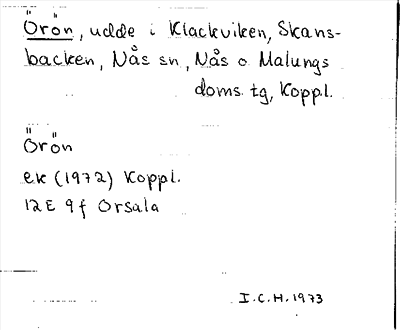 Örön, udde i Klackviken, Skans-
backen, Nås sn, Nås o Malungs
doms. tg, Koppl.
Örön
ek (1972) Koppl.
12E 9f Orsala
I.C.H. 1973